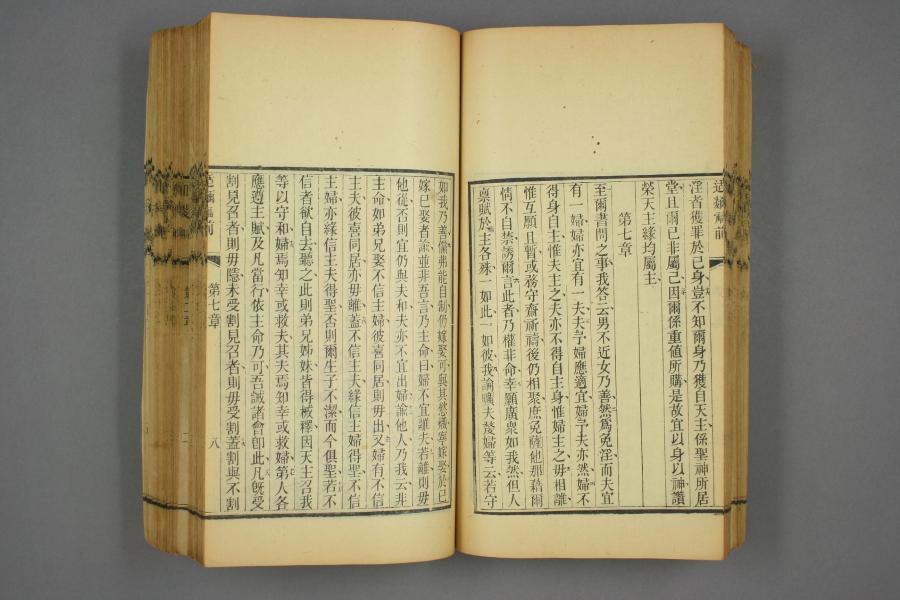 淫者獲罪於己身豈不知爾身乃獲自天主係聖神所居
堂且爾已非屬己因爾係重値所購是故宜以身以神讚
榮天主緣均屬主
第七章
至爾書問之事我答云男不近女乃善然爲免淫而夫宜
有一婦婦亦宜有一夫夫予婦應適宜婦予夫亦然婦不
得身自主惟夫主之夫亦不得自主身惟婦主之毋相離
惟互願且暫或務守齋祈禱後仍相聚庶免薩他那藉爾
情不自禁誘爾言此者乃權非命幸願廣衆如我然但人
稟賦於主各殊一如此一如彼我諭嘰夫嫠婦等云若守
如我乃善儻弗能自制仍嫁娶可與其慾熾寧嫁娶於已
嫁已娶者諭並非吾言乃主命曰婦不宜離夫若離則毋
他從否則宜仍與夫和夫亦不宜出婦諭他人乃我云非
主命如弟兄娶不信主婦彼喜同居則毋出又婦有不信
主夫彼喜同居亦毋離蓋不信主夫緣信主婦得聖不信
主婦亦緣信主夫得聖否則爾生子不潔而今俱聖若不
信者欲自去聽之此則弟兄姊妹皆得被釋因天主召我
等以守和婦焉知幸或救夫其夫焉知幸或救婦第人各
應遵主賦及凡當行依主命乃可吾誡諸會卽此凡旣受
割見召者則毋隱未受割見召者則毋受割蓋割與不割
第七章
八